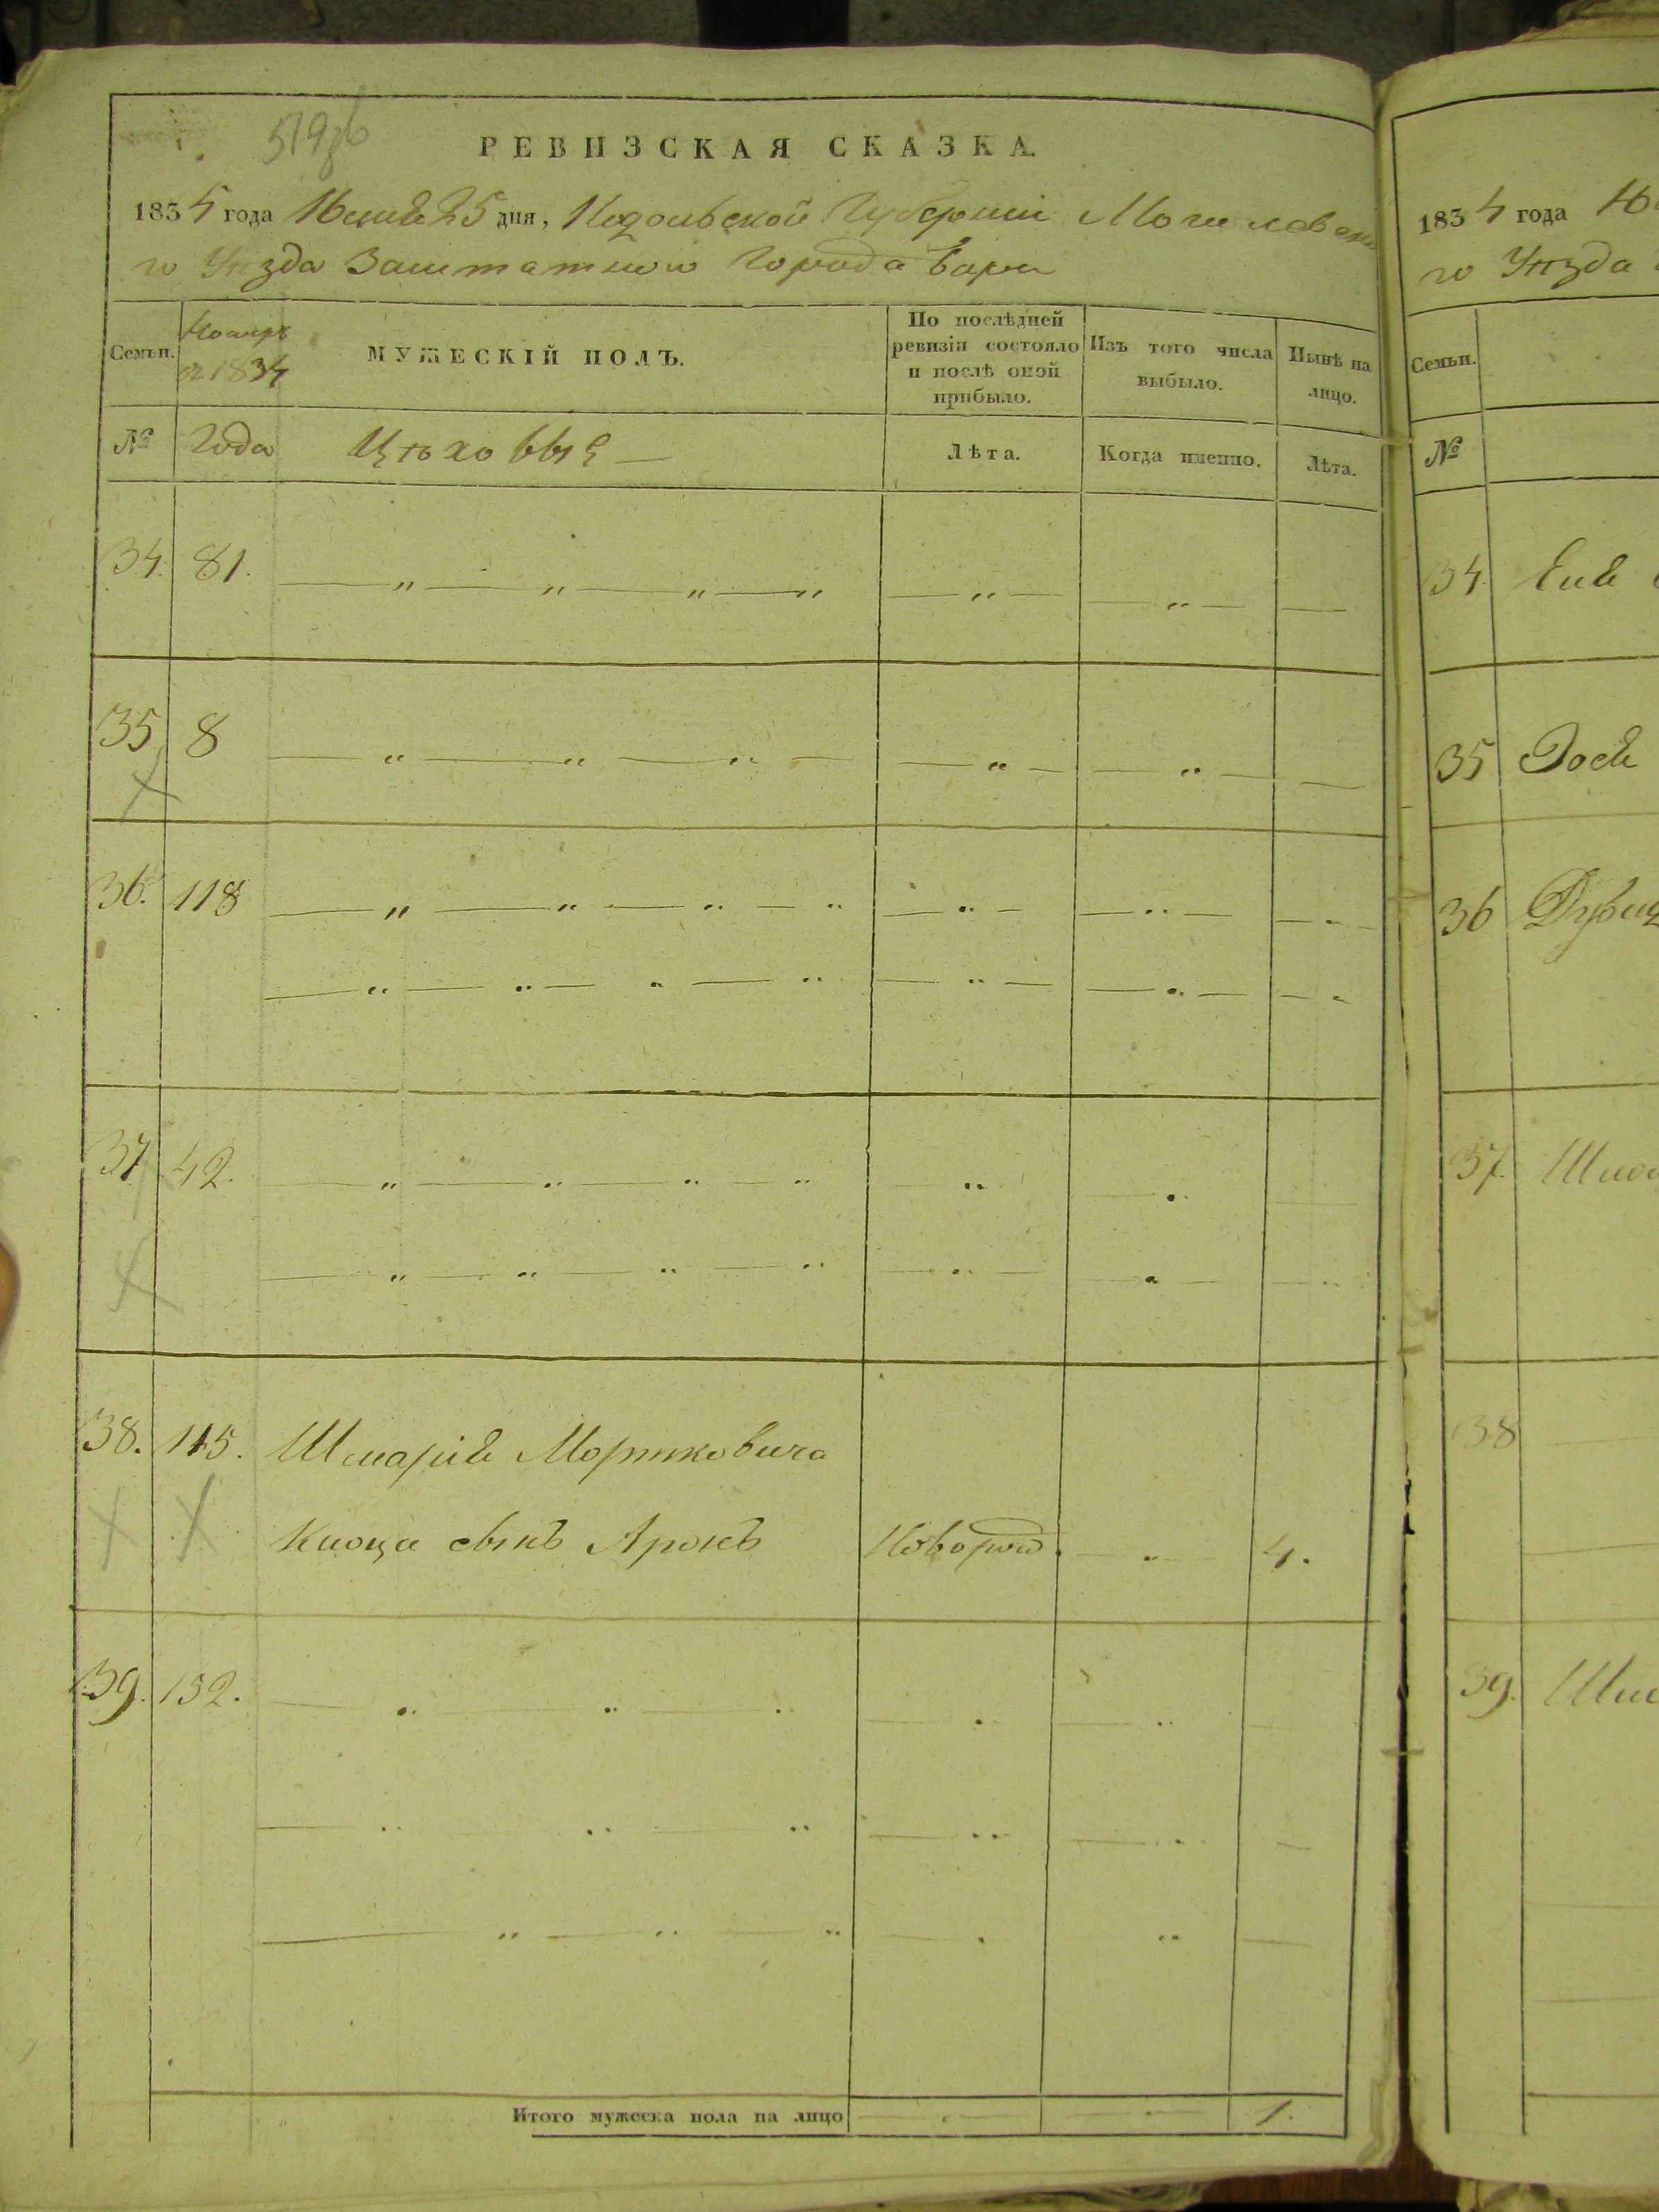 РЕВИЗСКАЯ СКАЗКА.
1834 года 25 дня, Подольской Губерніи Могилевска
го Уѣзда Заштатного Города Бара
Семьи.
1834
МУЖЕСКІЙ ПОЛЪ.
По послѣдней
ревизіи состояло
и послѣ оной
прибыло.
Изъ того числа
выбыло.
Нынѣ на
лицо.
№
Года
Цѣховые
Лѣта.
Когда именно.
Лѣта.
34. 81.
35 8
36. 118
37 42.
38. 115. Шмарія Мортковича
сынъ Аронъ Новорож. 4.
39. 152.
Итого мужеска пола на лицо 1.
1834 года
го Уѣзда
Семьи.
№
34.
35
36
37.
38
39.